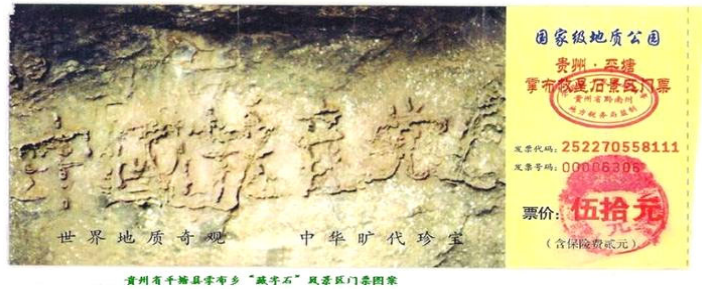 中國共産党亡
世界地质奇观 中华旷代珍宝
国家级地质公园
贵州·平塘
掌布 石景区门票
贵州省黔南州
地方税务局监制
发票代码：252270558111
发票号码：00006306
票价：伍拾元
（含保险费贰元）
贵州省平塘县掌布乡“藏字石”风景区门票图案